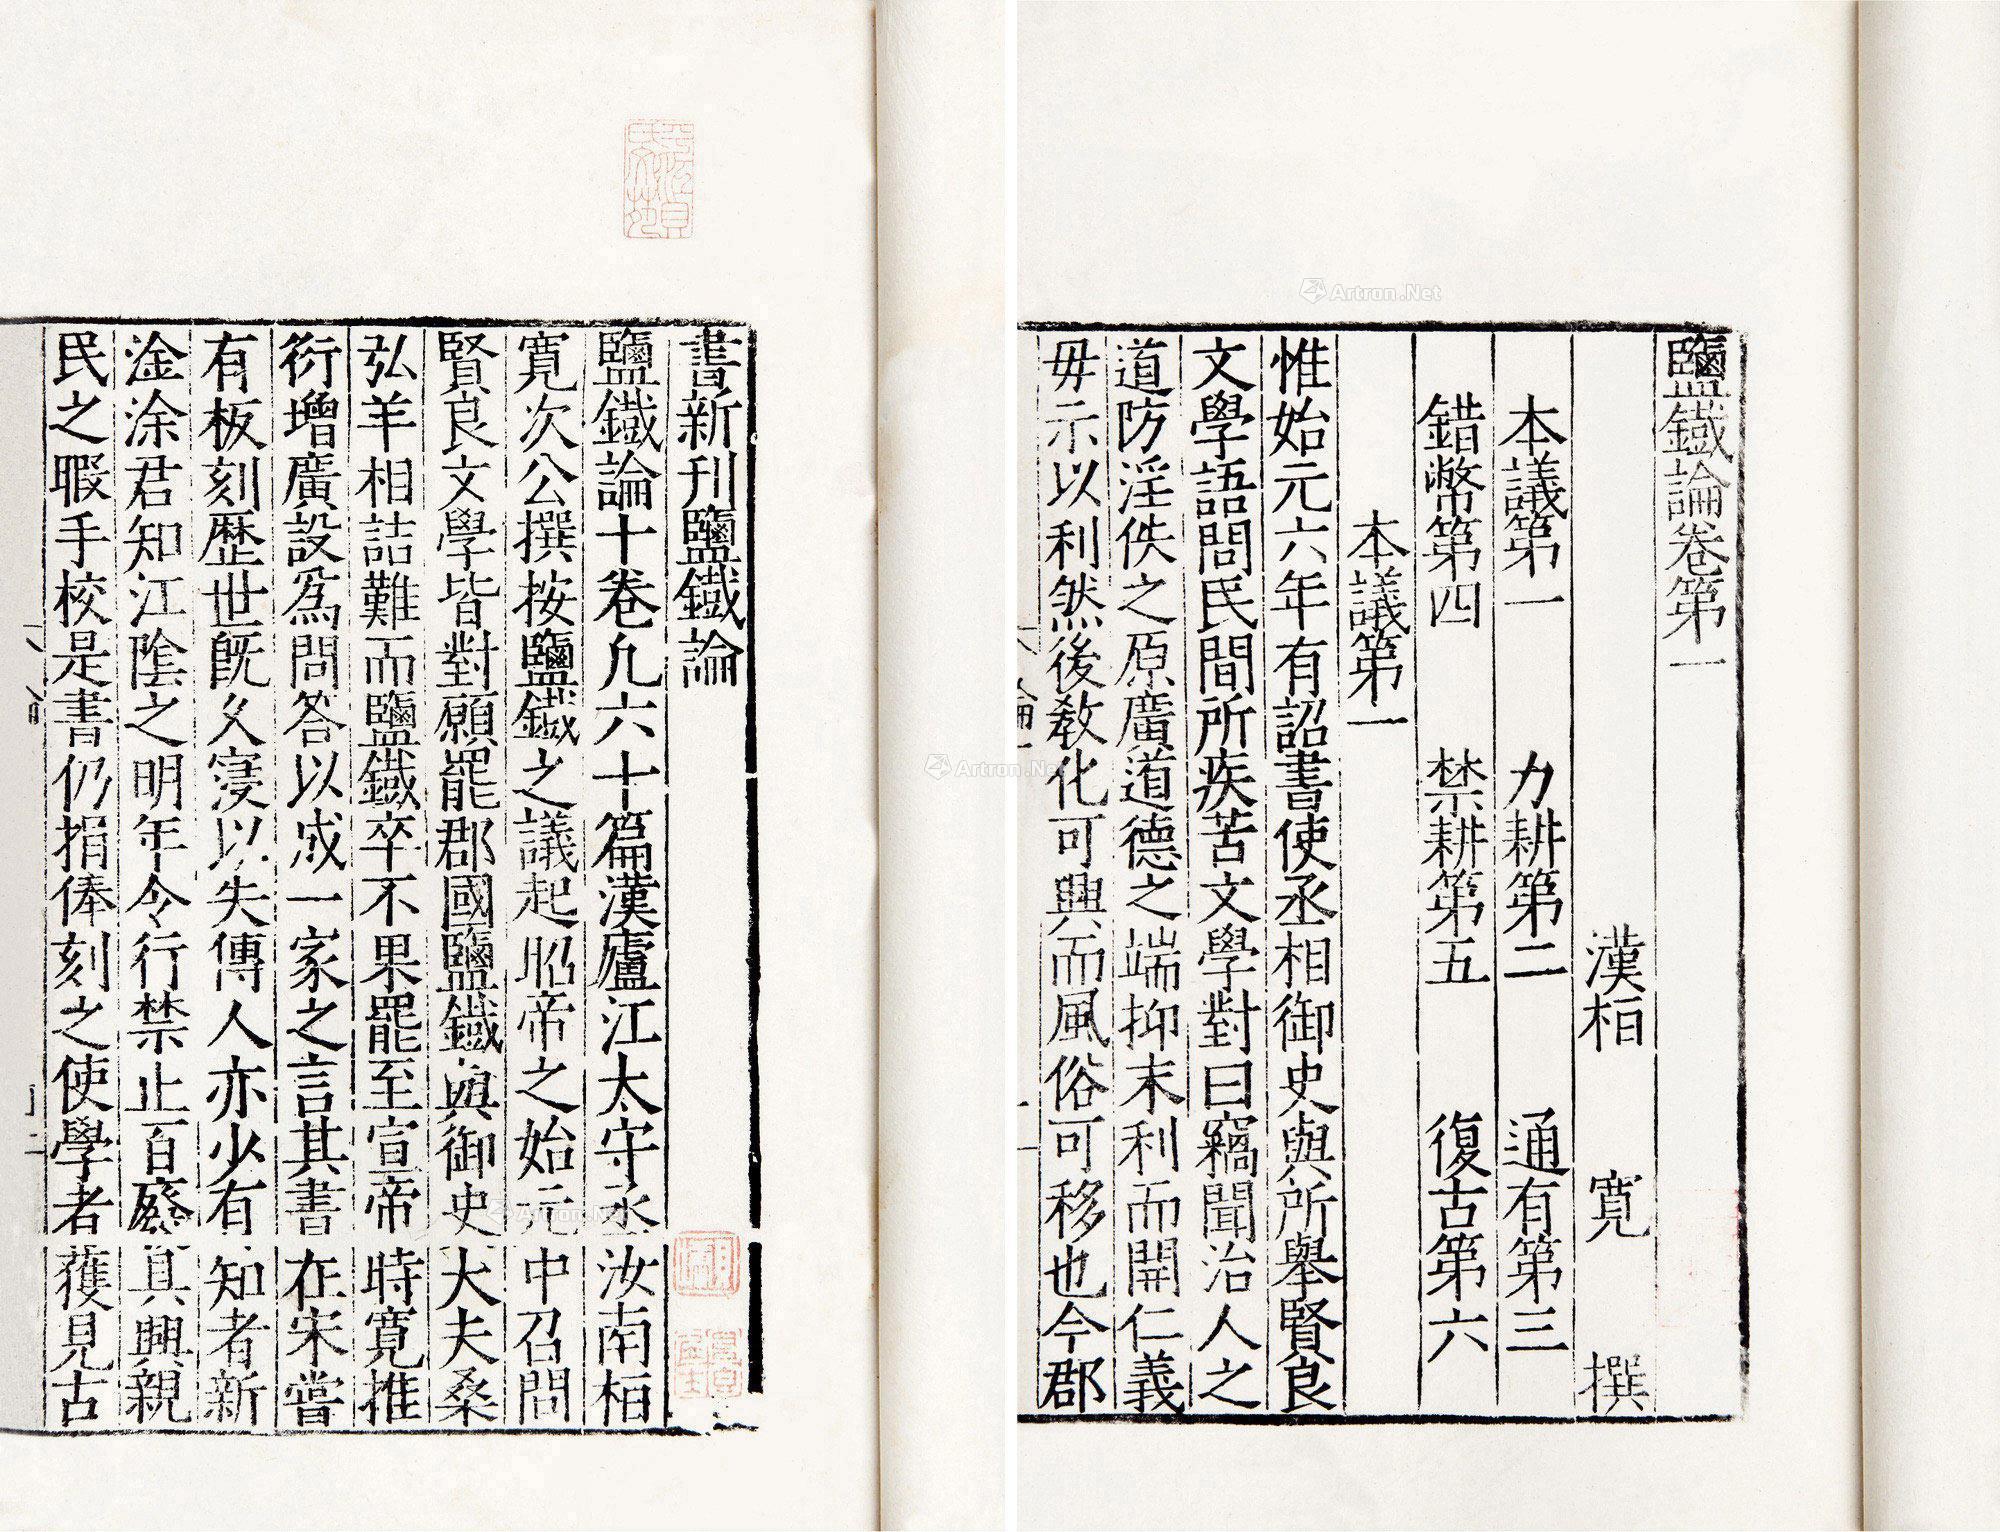 書新刊鹽鐵論
鹽鐵論十卷凡六十篇漢廬江太守丞汝南桓
寬次公撰按鹽鐵之議起昭帝之始元中召問
賢良文學皆對願罷郡國鹽鐵與御史大夫桑
弘羊相詰難而鹽鐵卒不果罷至宣帝時寬推
衍增廣設爲問答以成一家之言其書在宋嘗
有板刻歷世旣久寖以失傳人亦少有知者新
淦涂君知江陰之明年令行禁止百廢具興親
民之暇手校是書仍捐俸刻之使學者獲見古
鹽鐵論卷第一
漢桓 寬 撰
本議第一 力耕第二 通有第三
錯幣第四 禁耕第五 復古第六
本議第一
惟始元六年有詔書使丞相御史與所舉賢良
文學語問民間所疾苦文學對曰竊聞治人之
道防淫佚之原廣道德之端抑末利而開仁義
毋示以利然後敎化可興而風俗可移也今郡
Artron.Net
Artron.Net
Artron.Net